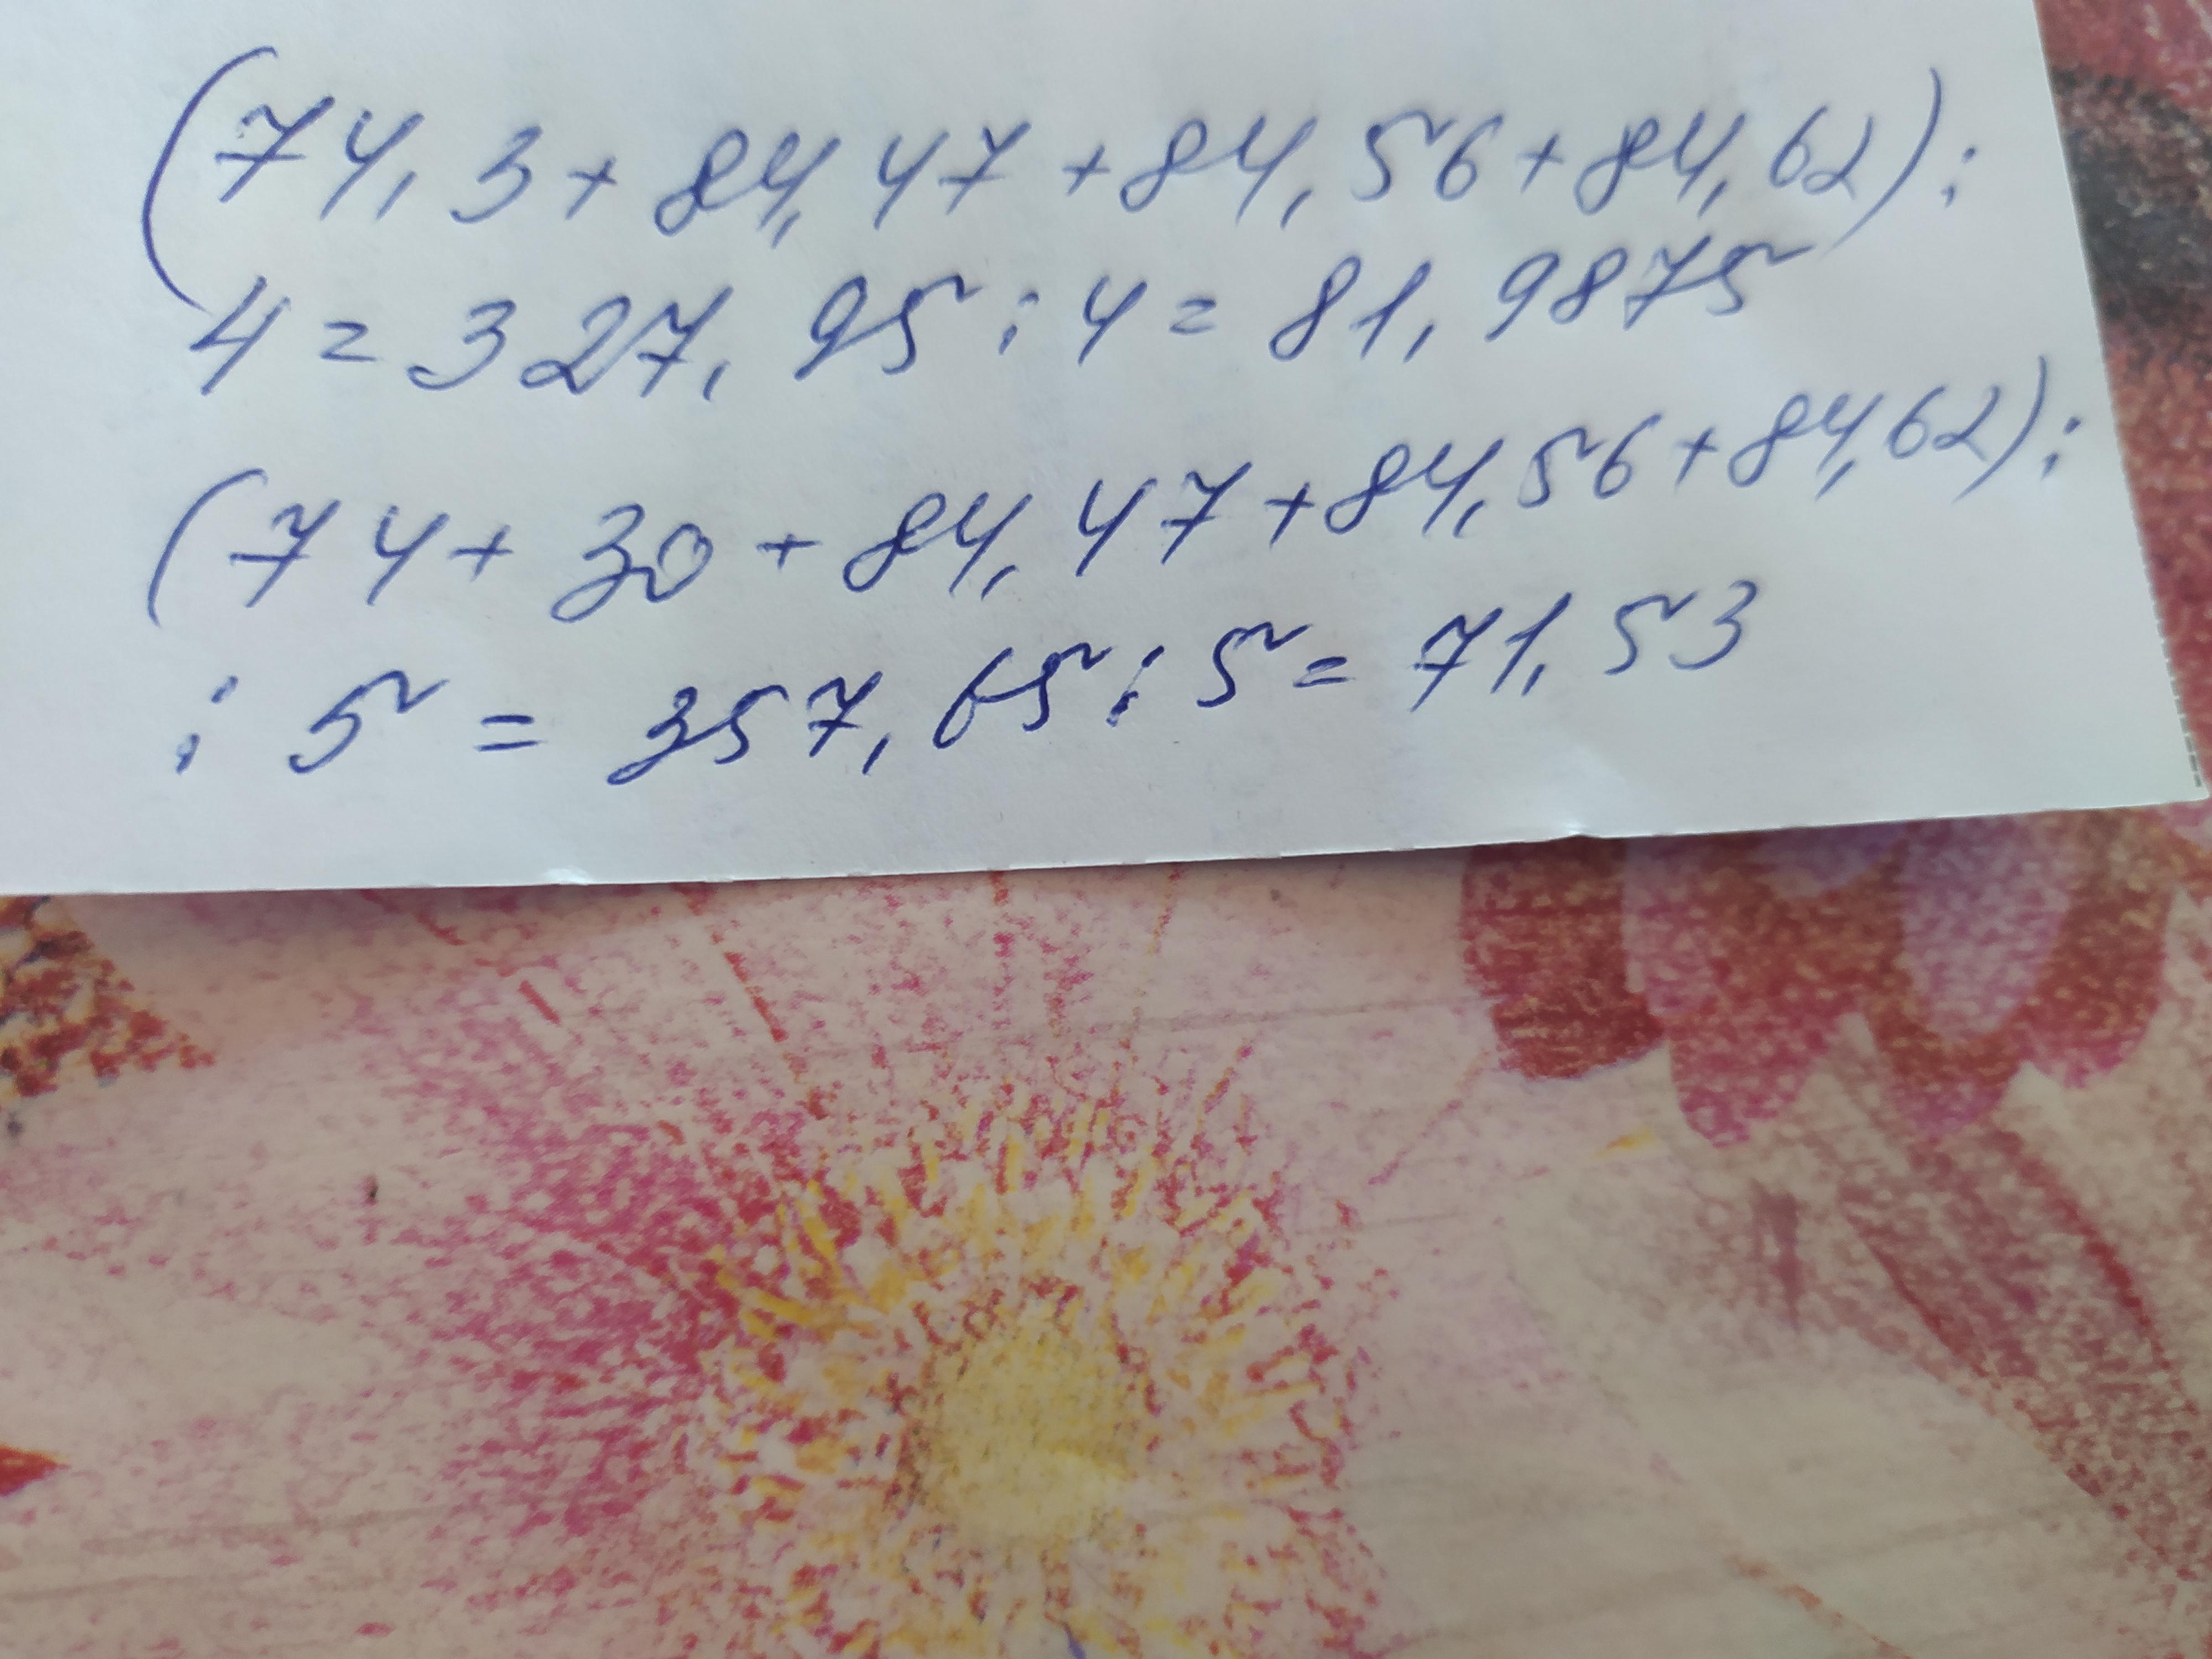 (74,3+84,47+84,56+84,62):
4=327,95:4=81,9875
(74+30+84,47+84,56+84,62):
:5=357,65:5=71,53